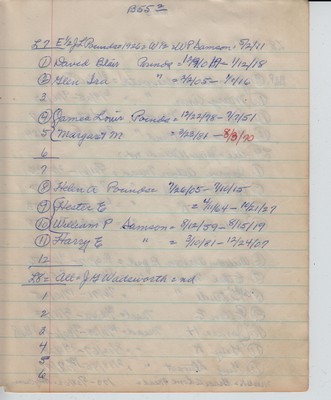 B55
L7 E½ J L Pounds = 1926 = W½ = W P Samson = 8/2/11
① David Blair Pounds = - 1/12/18
② Glen Ira " = 2/2/05 - 1/7/16
3
④ James Louis Pounds = 12/22/98 - 7/9/51
5 Margaret M = 9/23/81 - 8/3/70
6
7
⑧ Helen A Pounds = 4/26/05 - 7/10/15
⑨ Hester E = 4/11/64 - 12/21/27
⑩ William P Samson = 8/12/59 - 8/15/19
⑪ Harry E " = 3/10/81 - 12/24/07
12
L8 = All = J G Wadsworth = nd
1
2
3
4
5
6